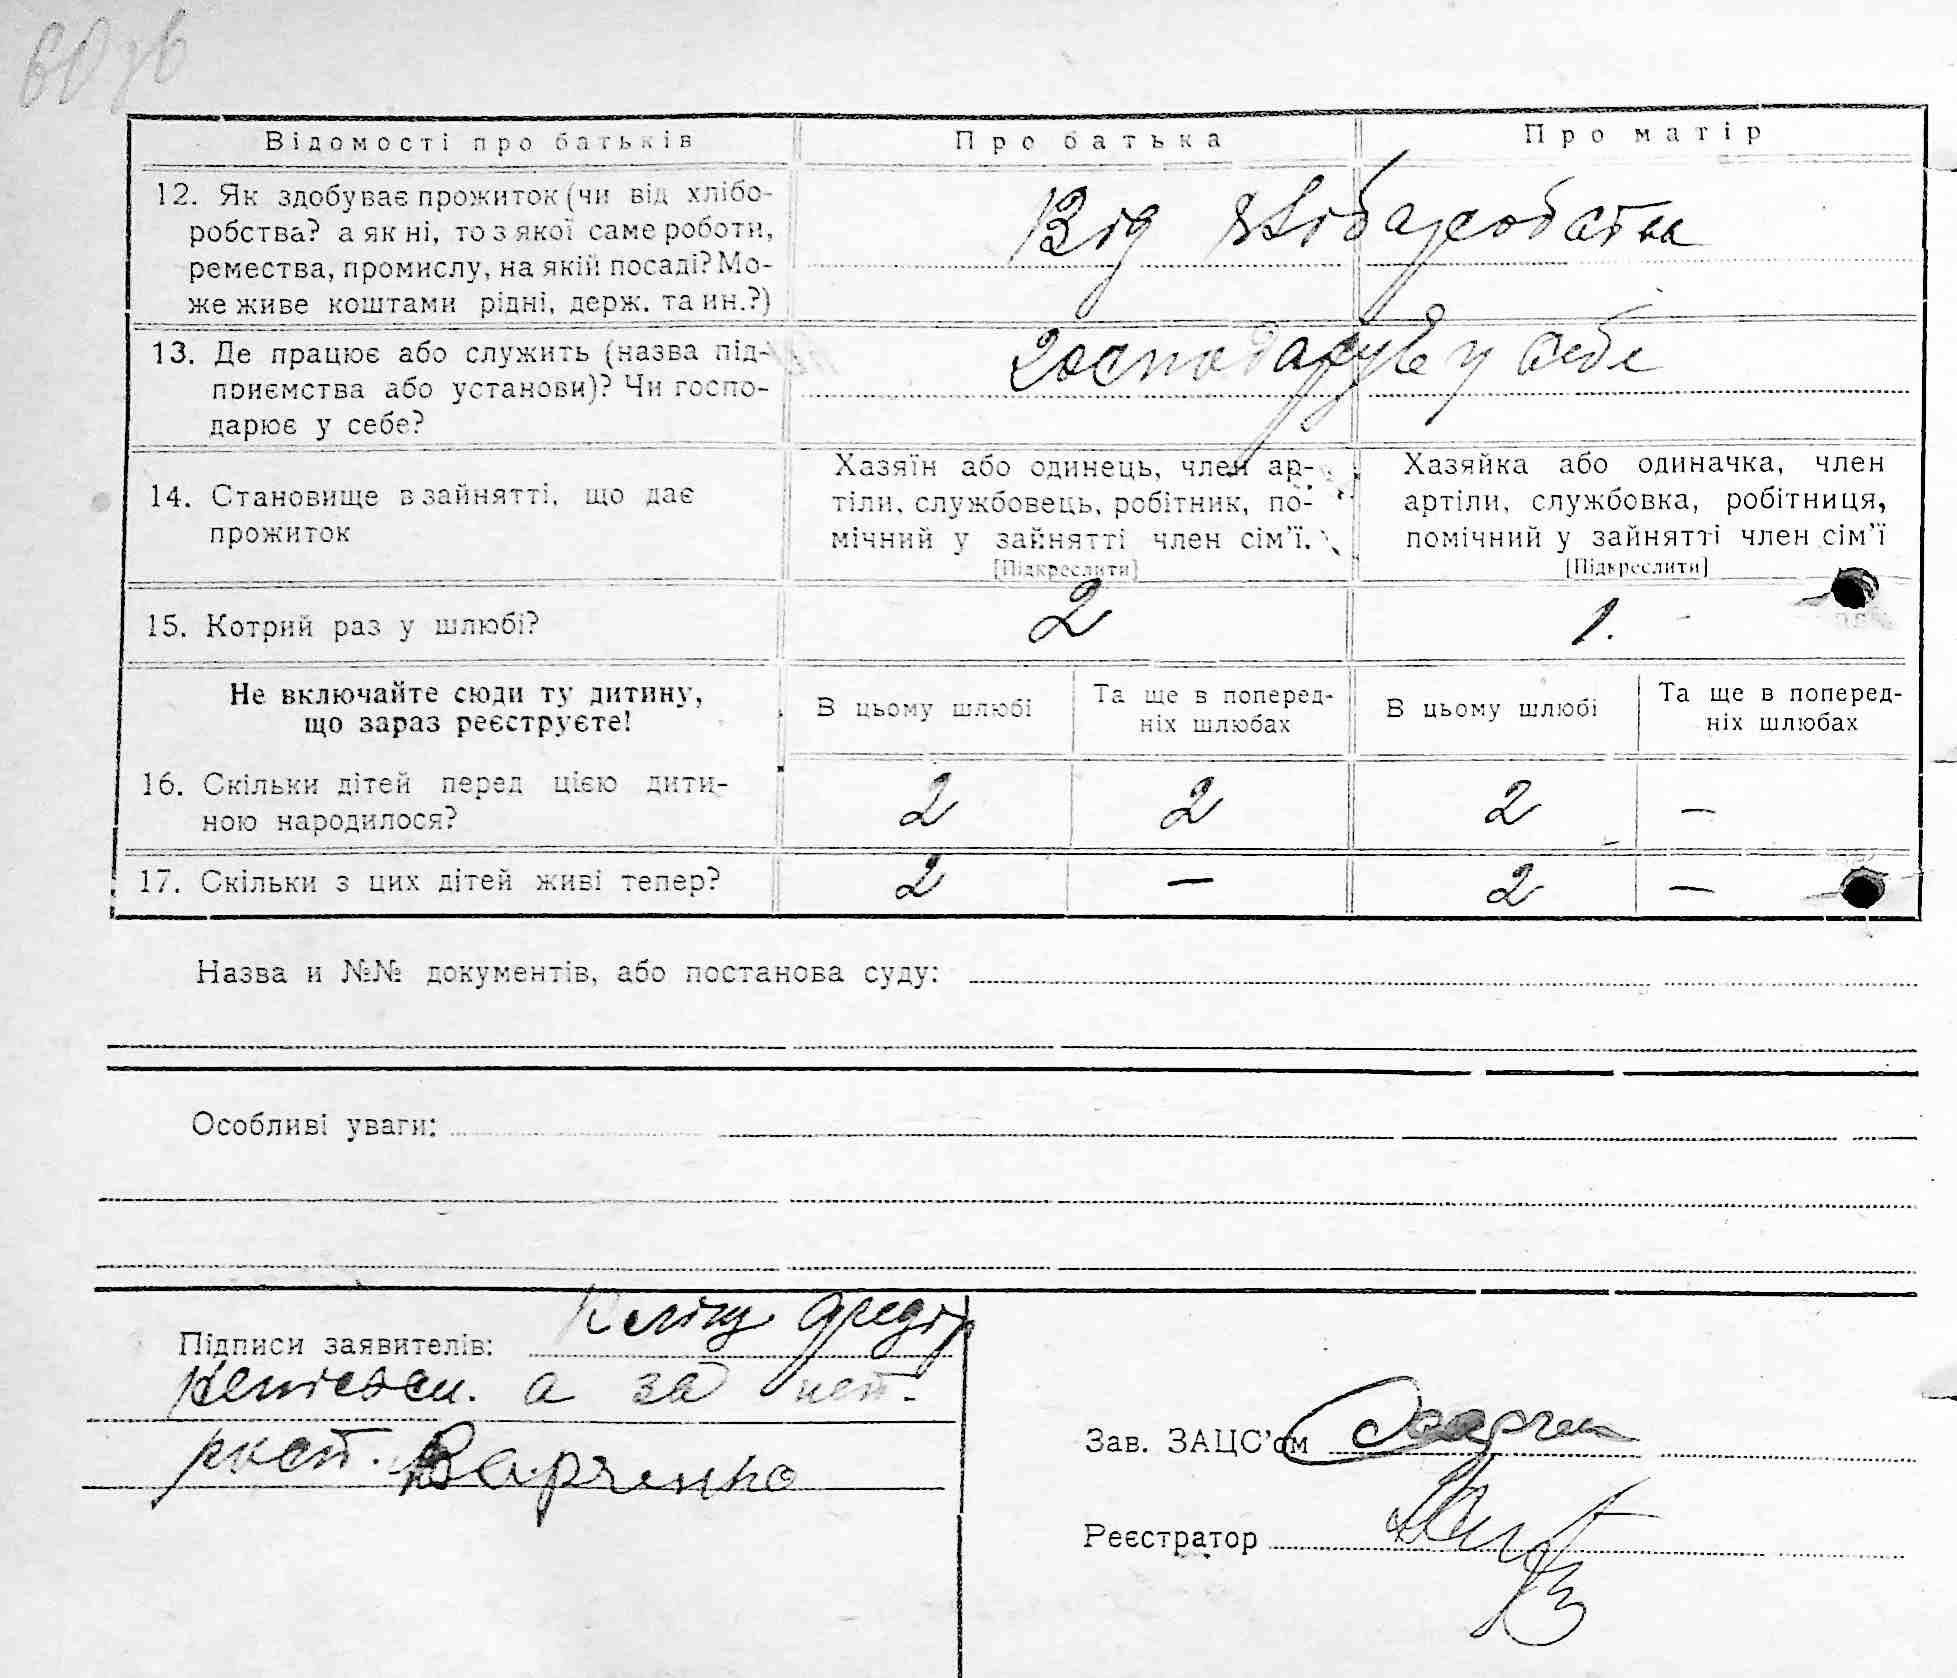 60 зв
Відомості про батьків
Про батька
Про матір
12. Як здобуває прожиток (чи від хлібо-
робства? а як ні, то з якої саме роботи,
ремества, промислу, на якій посаді? Мо-
же живе коштами рідні, держ. та ин.?)
Від хліборобства
13. Де працює або служить (назва під-
приємства або установи)? Чи госпо-
дарює у себе?
господарує у себе
14. Становище в зайнятті, що дає
прожиток
Хазяїн або одинець, член ар-
тіли, службовець, робітник, по-
мічний у зайнятті член сім'ї.
[Підкреслити]
Хазяйка або одиначка, член
артіли, службовка, робітниця,
помічний у зайнятті член сім'ї
[Підкреслити]
15. Котрий раз у шлюбі?
2
1.
Не включайте сюди ту дитину,
що зараз реєструєте!
В цьому шлюбі
Та ще в поперед-
ніх шлюбах
В цьому шлюбі
Та ще в поперед-
ніх шлюбах
16. Скільки дітей перед цією дити-
ною народилося?
2
2
2
–
17. Скільки з цих дітей живі тепер?
2
–
2
–
Назва и №№ документів, або постанова суду:
Особливі уваги:
Підписи заявителів:
а за
Варченко
Зав. ЗАЦС'ом
Реєстратор